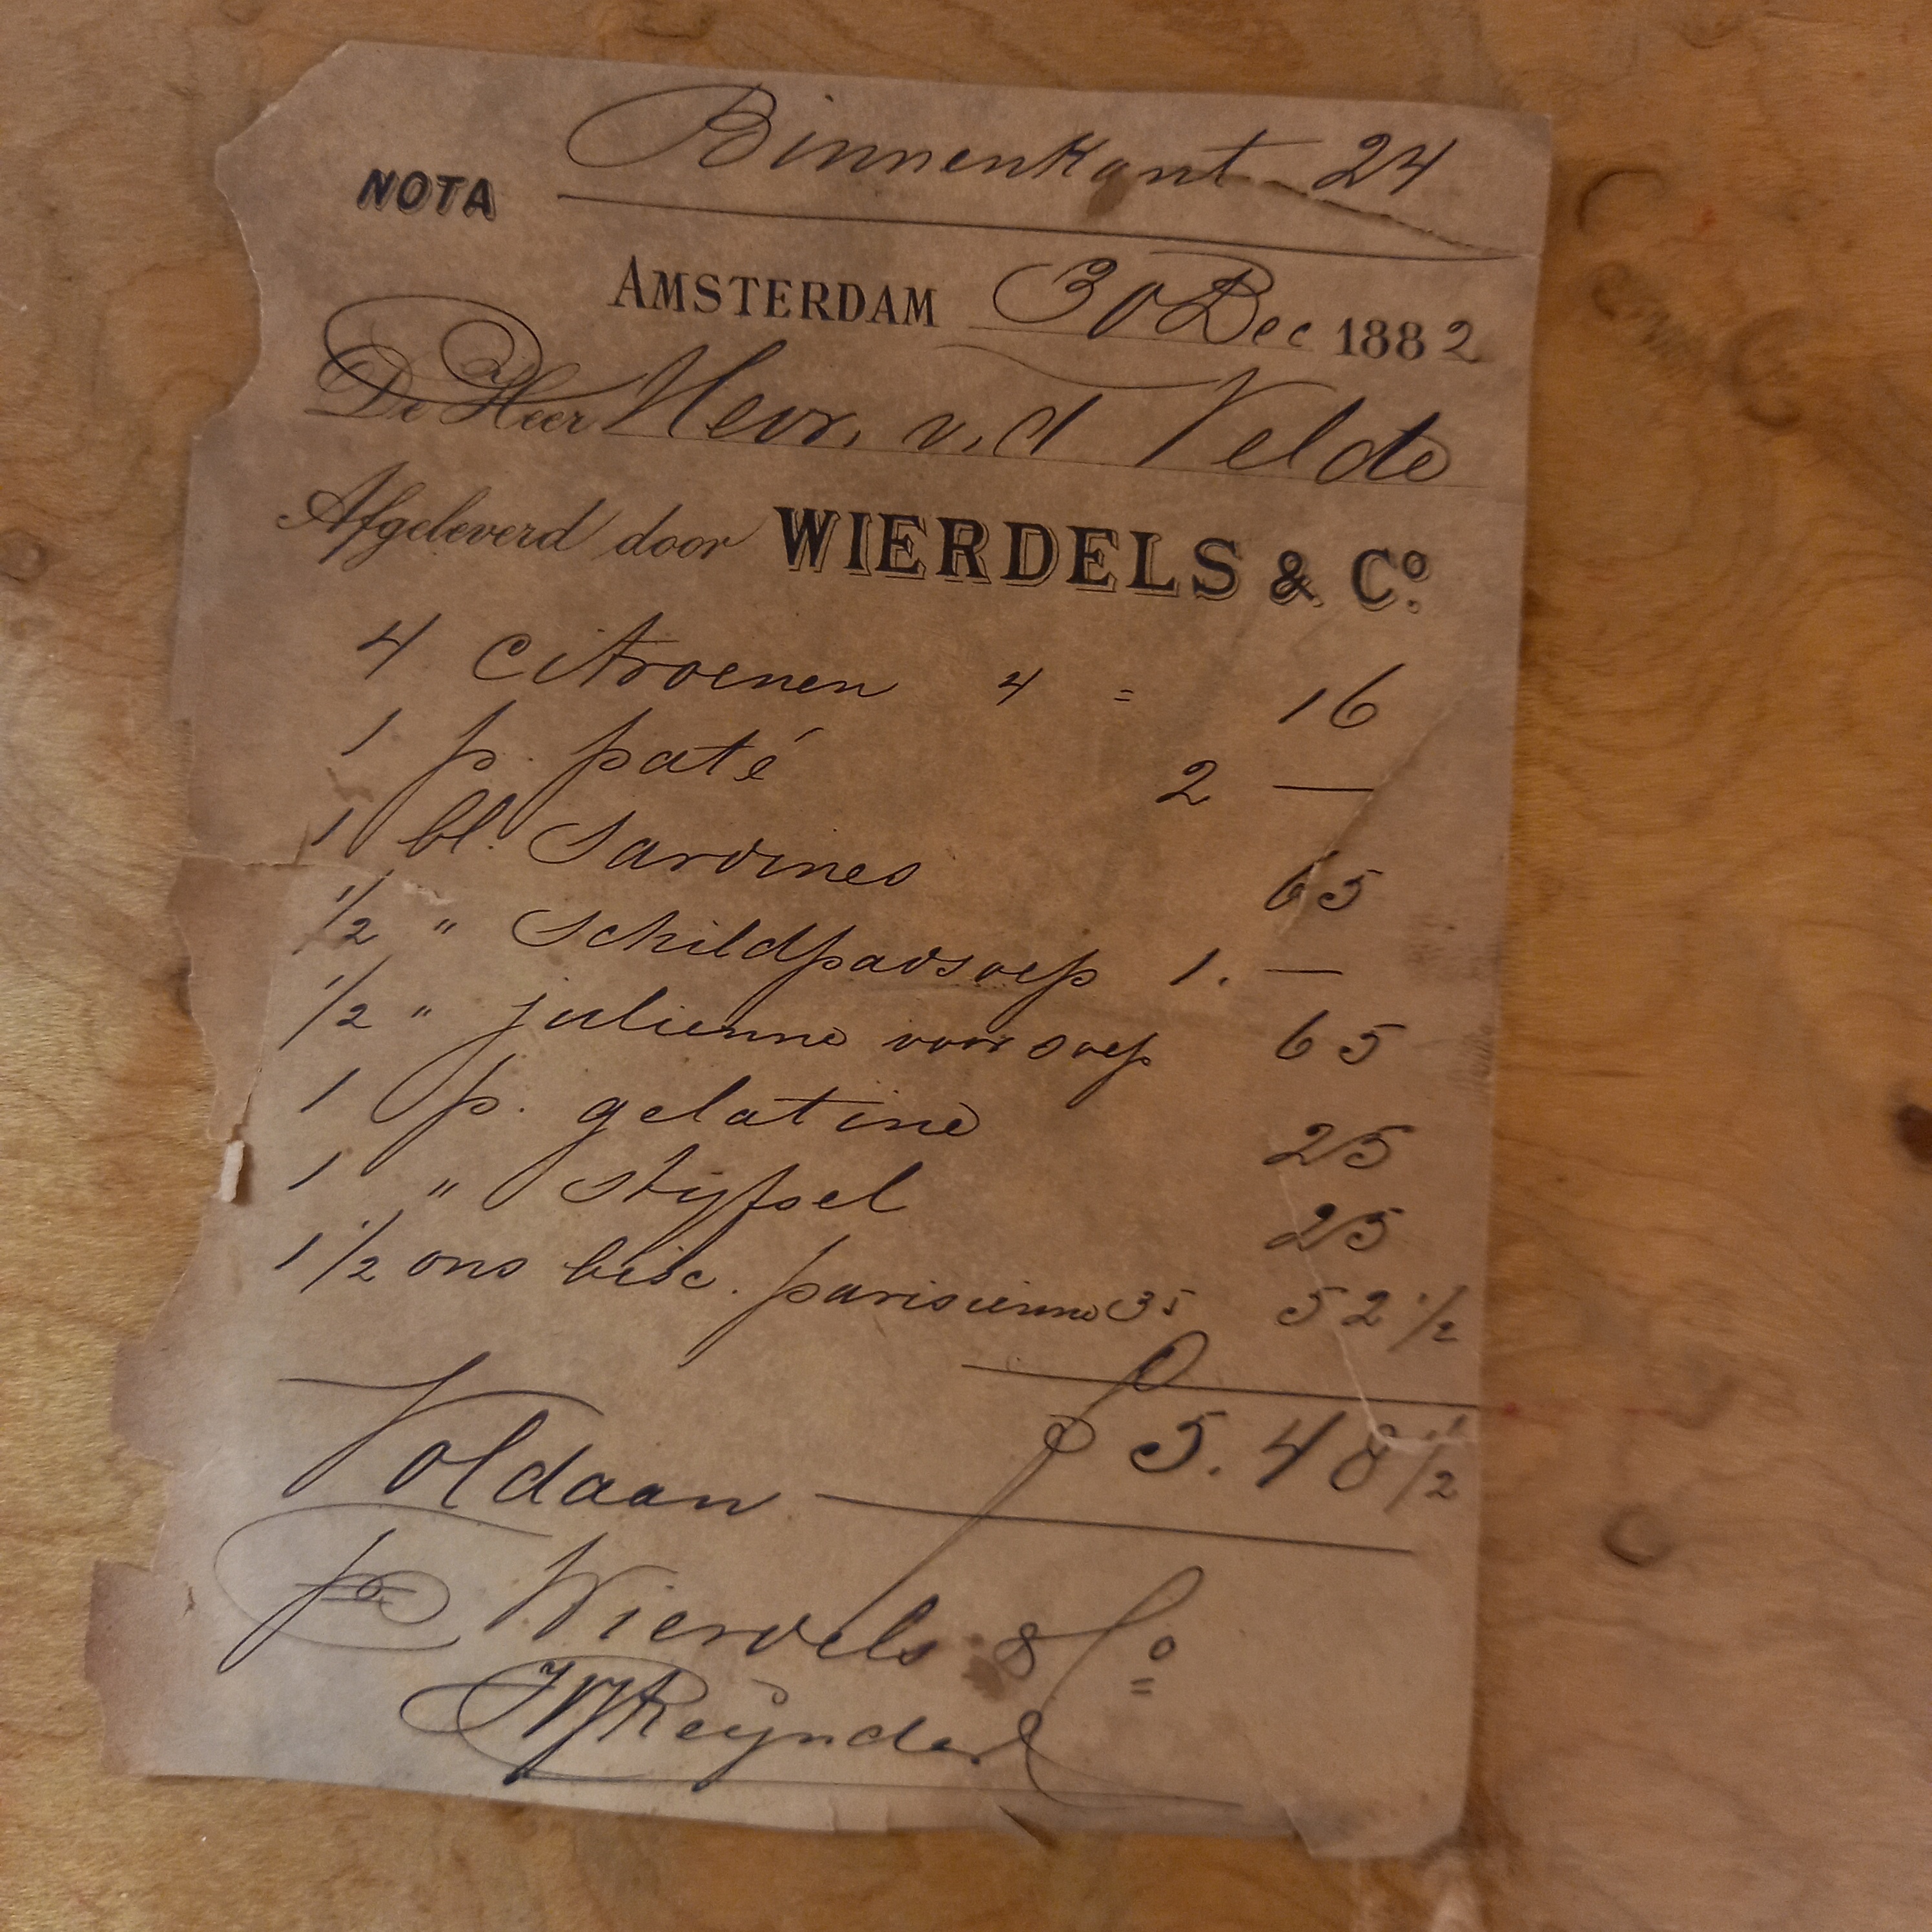 NOTA Binnenkant 24
AMSTERDAM 30 Dec 1882
De Heer Mevr. v. d Velde
Afgeleverd door WIERDELS & Co.
4 citroenen 4 = 16
1 p. paté 2 —
1 bl. Sardines 65
1/2 " Schildpadsoep 1. —
1/2 " julienne voor soep 65
1 p. gelatine 25
1 " stijfsel 25
1 1/2 ons bisc. parisienne 35 52 1/2
f 5.48 1/2
Voldaan
Wierdels & Co
Reijnders